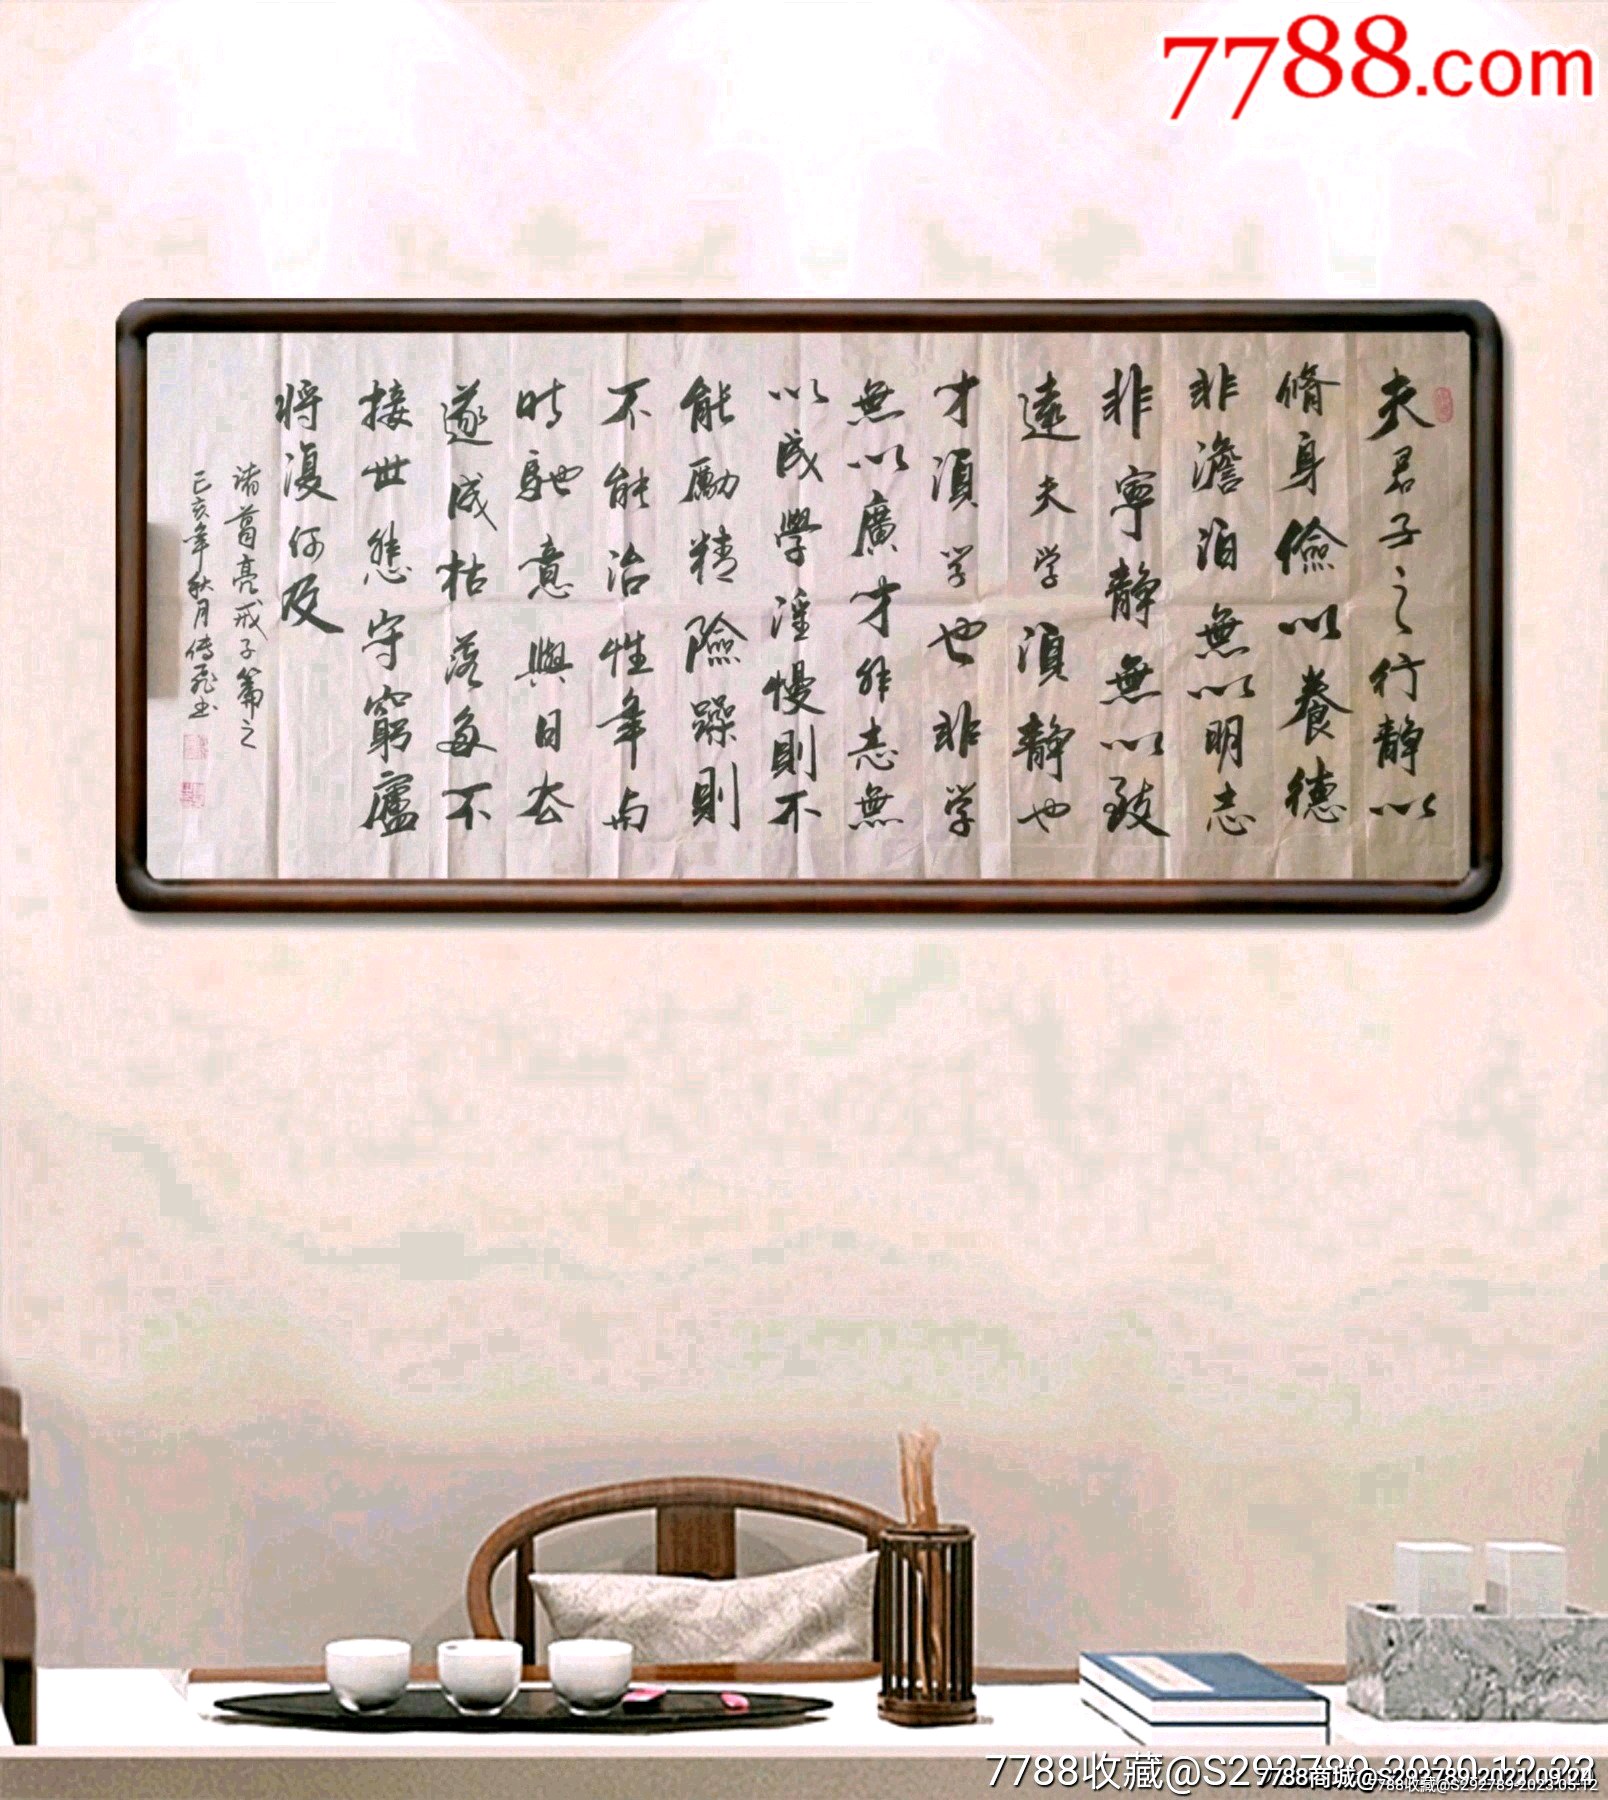 7788.com
夫君子之行静以
脩身儉以養德
非澹泊無以明志
非寧静無以致
遠夫学須静也
才須学也非学
無以廣才非志無
以成學淫慢則不
能勵精險躁則
不能治性年与
时馳意與日去
遂成枯落多不
接世悲守窮廬
将復何及
诸葛亮戒子篇之
己亥年秋月传飛书
7788收藏@S292789 2020.12.22
7788商城@S292789 2021.09.24
7788收藏@S292789 2023.05.12